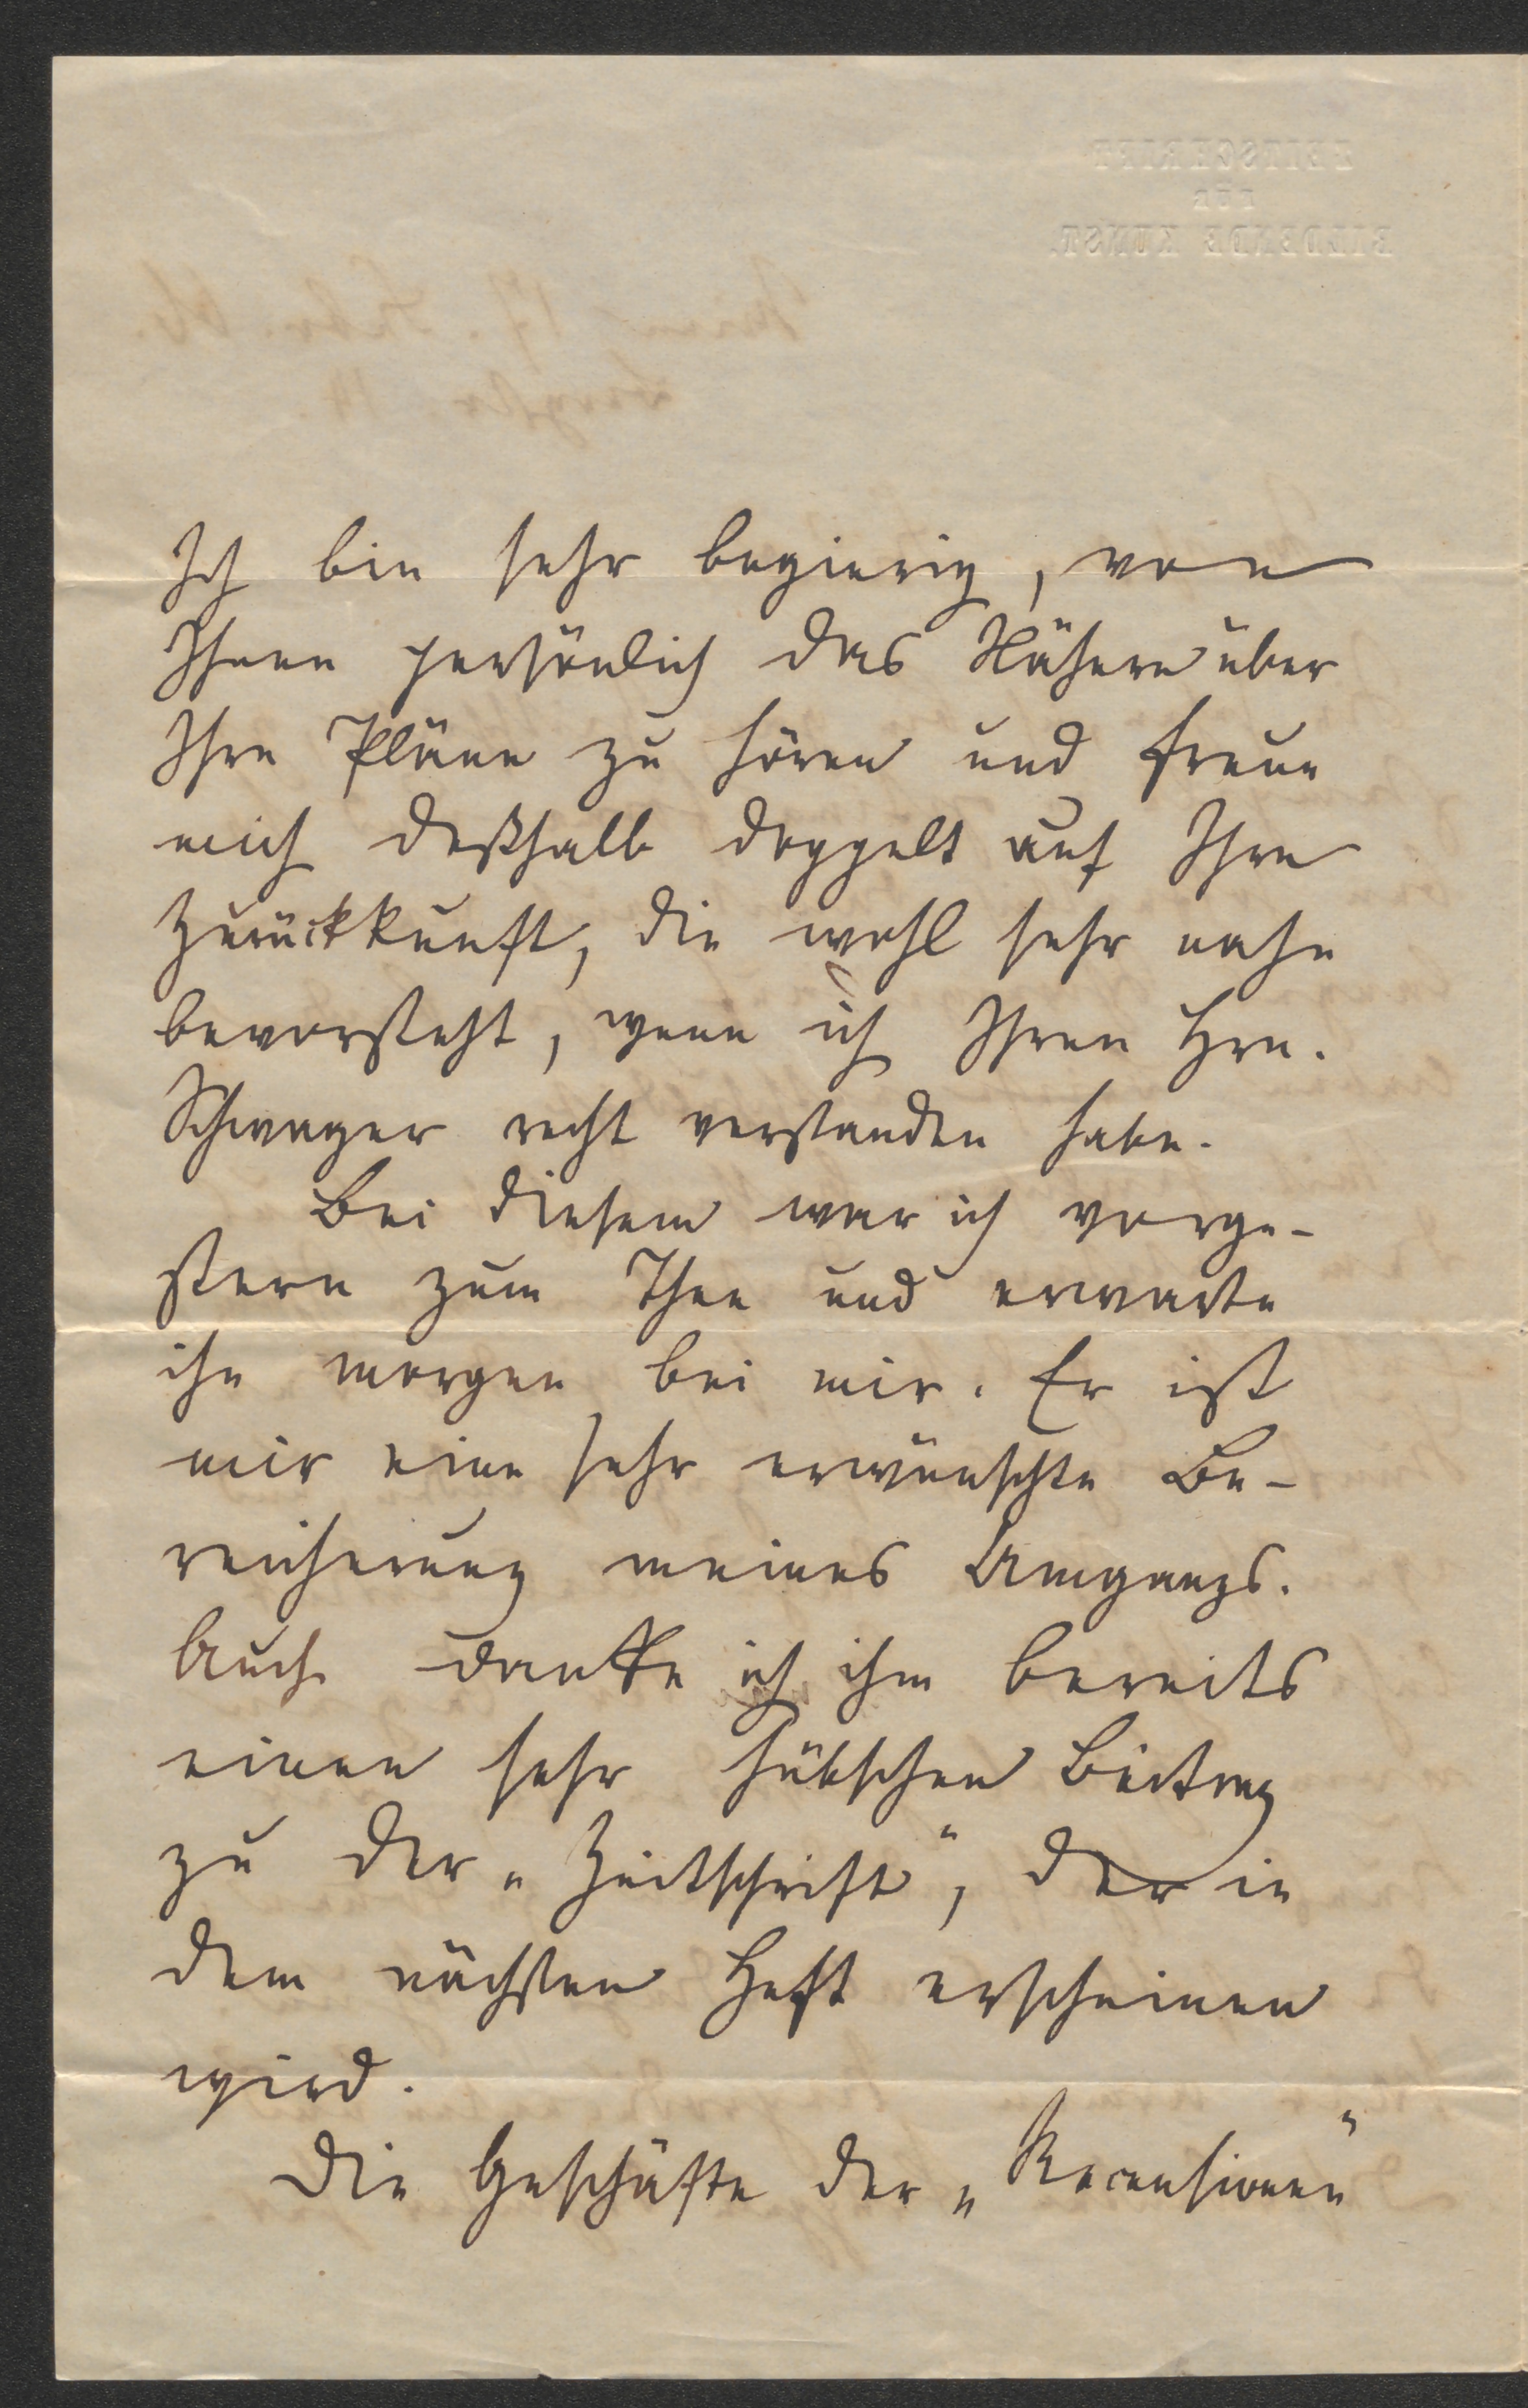 ZEITSCHRIFT
FÜR
BILDENDE KUNST.
Ich bin sehr begierig, von
Ihnen persönlich das Nähere über
Ihre Pläne zu hören und freue
mich deßhalb doppelt auf Ihre
Zurückkunft, die wohl sehr nahe
bevorsteht, wenn ich Ihren Hrn.
Schwager recht verstanden habe.
Bei diesem war ich vorge-
stern zum Thee und erwarte
ihn morgen bei mir. Er ist
mir eine sehr erwünschte Be-
reicherung meines Umgangs.
Auch danke ich ihm bereits
einen sehr hübschen Beitrag
zu der „Zeitschrift“, der in
dem nächsten Heft erscheinen
wird.
Die Geschäfte der „Recensionen“